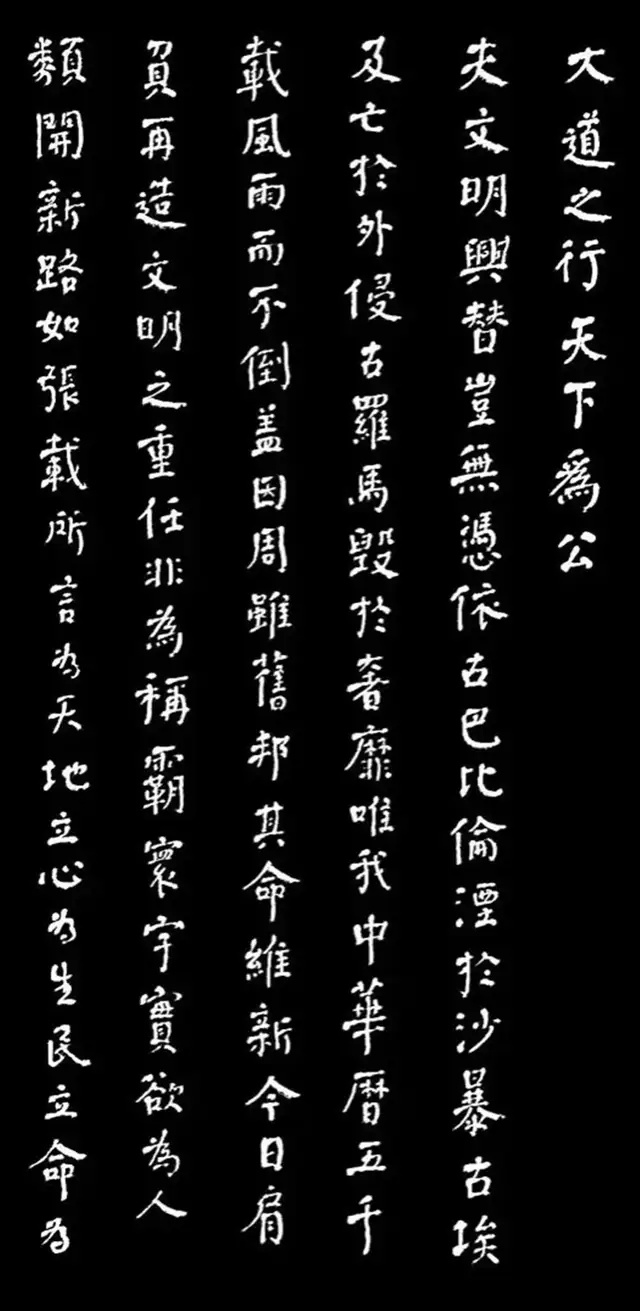 大道之行天下爲公
夫文明興替豈無憑依古巴比倫湮於沙暴古埃
及亡於外侵古羅馬毀於奢靡唯我中華曆五千
載風雨而不倒盖因周雖舊邦其命維新今日肩
負再造文明之重任非為稱霸寰宇實欲為人
類開新路如張載所言為天地立心為生民立命為